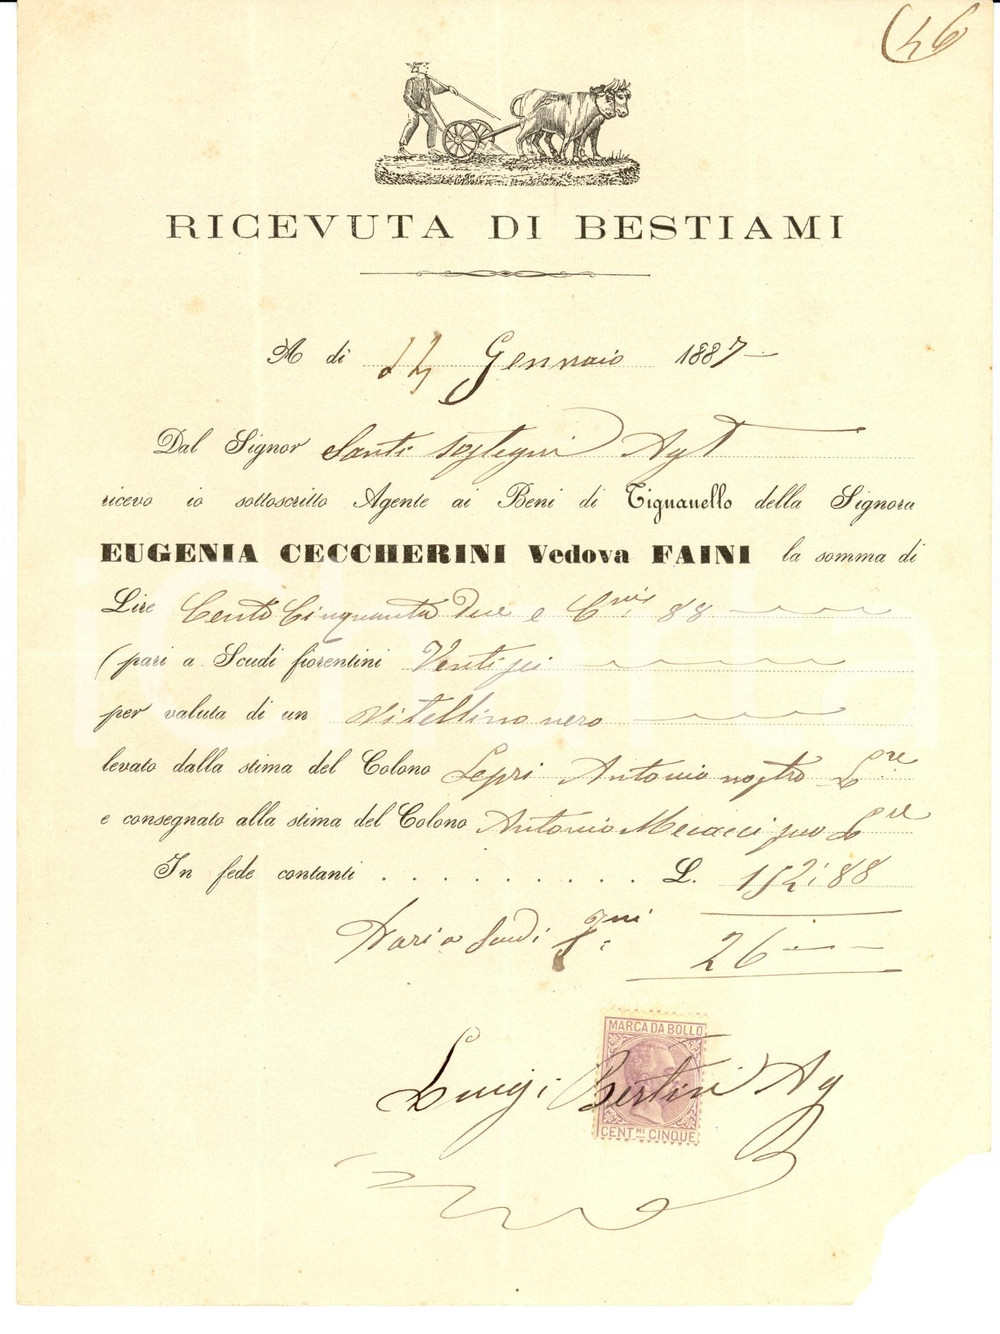 46
RICEVUTA DI BESTIAMI
A dì 14 Gennaio 1887
Dal Signor Santi Sostegni Agt
ricevo io sottoscritto Agente ai Beni di Tignanello della Signora
EUGENIA CECCHERINI Vedova FAINI la somma di
Lire Cento Cinquanta Due e Cmi 88
(pari a Scudi fiorentini Ventisei
per valuta di un vitellino nero
levato dalla stima del Colono Lepri Antonio nostro Lre
e consegnato alla stima del Colono Antonio Mecacci suo Lre
In fede contanti . . . . . . . . . . L. 152:88
Pari a Scudi 26
MARCA DA BOLLO
Luigi Bertini Ag
CENT.MI CINQUE